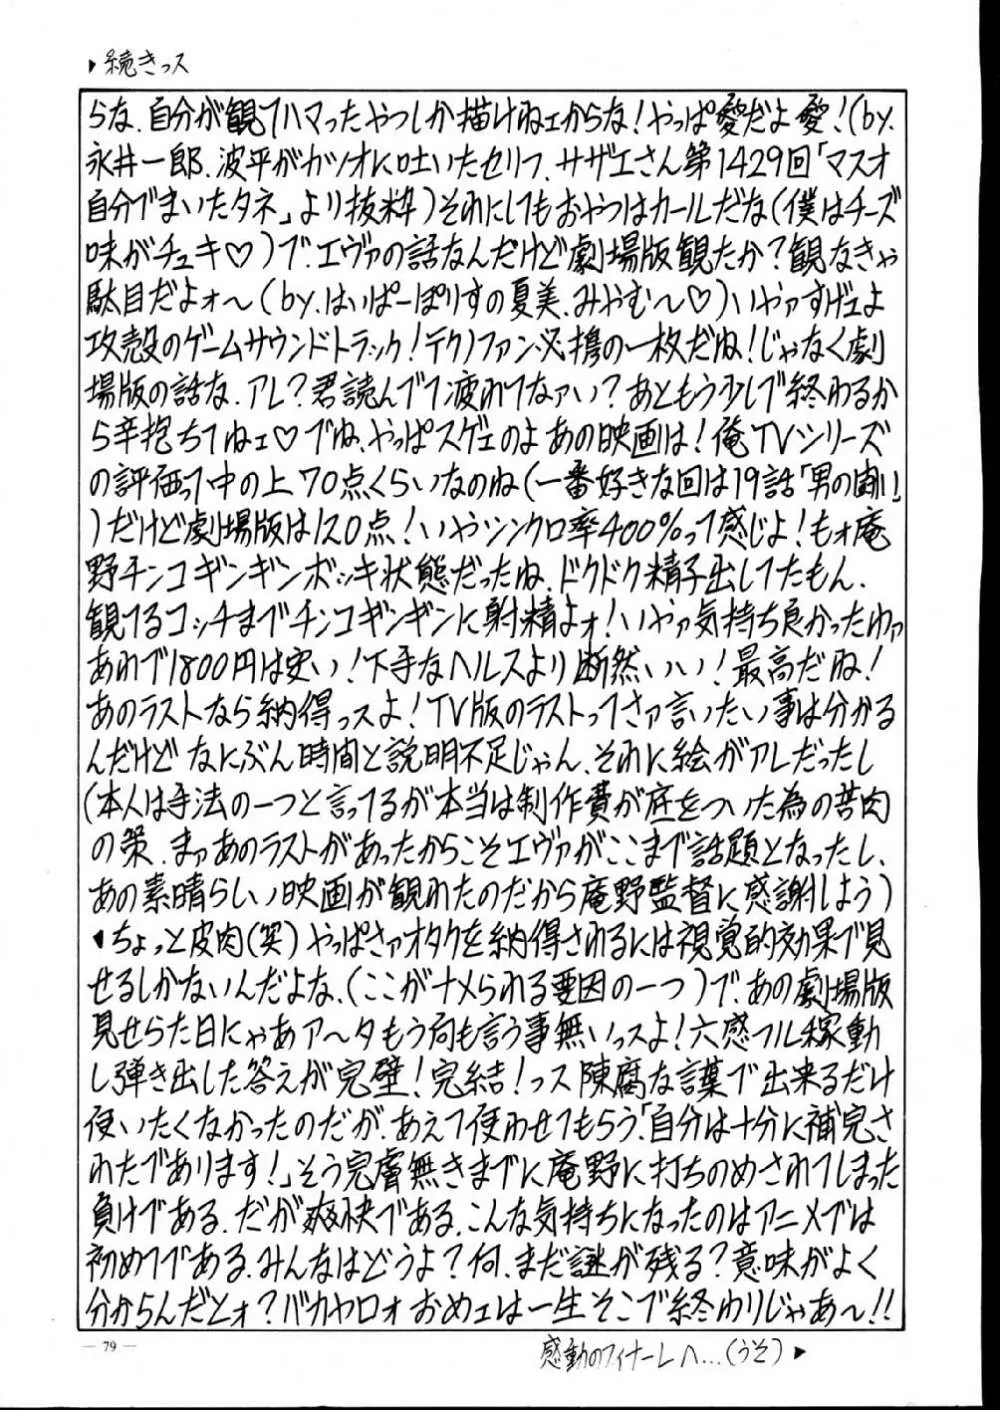 ▶続きっス
らな.自分が観てハマったやつしか描けねェからな!やっぱ愛だよ愛!(by.
永井一郎.波平がカツオに吐いたセリフ.サザエさん第1429回「マスオ
自分でまいたタネ」より抜粋)それにしてもおやつはカールだな(僕はチーズ
味がチュキ♡)で.エヴァの話なんだけど劇場版観たか?観なきゃ
駄目だよォ〜(by.はいぱーぽりすの夏美.みやむ〜♡)いやァすげェよ
攻殻のゲームサウンドトラック!テクノファン必携の一枚だね!じゃなく劇
場版の話な.アレ?君読んでて疲れてなァい?あともう少しで終わるか
ら辛抱ちてねェ♡でね.やっぱスゲェのよあの映画は!俺TVシリーズ
の評価って中の上70点くらいなのね(一番好きな回は19話「男の闘い」
)だけど劇場版は120点!いやシンクロ率400%って感じよ!もォ庵
野チンコギンギンボッキ状態だったね.ドクドク精子出してたもん.
観てるコッチまでチンコギンギンに射精よォ!いやァ気持ち良かったゆァ
あれで1800円は安い!下手なヘルスより断然いい!最高だね!
あのラストなら納得っスよ!TV版のラストってさァ言いたい事は分かる
んだけどなにぶん時間と説明不足じゃん.それに絵がアレだったし
(本人は手法の一つと言ってるが本当は制作費が底をついた為の苦肉
の策.まァあのラストがあったからこそエヴァがここまで話題となったし、
あの素晴らしい映画が観れたのだから庵野監督に感謝しよう)
◀ちょっと皮肉(笑)やっぱさァオタクを納得されるには視覚的効果で見
せるしかないんだよな.(ここがナメられる要因の一つ)で.あの劇場版
見せらた日にゃあア〜タもう何も言う事無いっスよ!六感フル稼動
し弾き出した答えが完璧!完結!っス陳腐な言葉で出来るだけ
使いたくなかったのだが.あえて使わせてもらう.「自分は十分に補完さ
れたであります!」そう完膚無きまでに庵野に打ちのめされてしまった
負けである.だが爽快である.こんな気持ちになったのはアニメでは
初めてである.みんなはどうよ?何.まだ謎が残る?意味がよく
分からんだとォ?バカヤロォおめェは一生そこで終わりじゃあ〜!!
— 79 —
感動のフィナーレへ…(うそ)▶